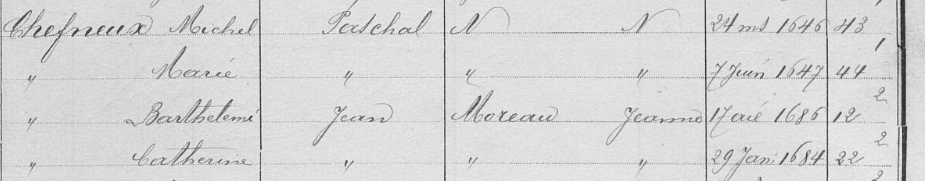 Chefneux Michel Paschal N N 24 ms 1646 43 1
" Marie " " " 7 Juin 1647 44
" Barthelemi Jean Moreau Jeanne 17 1686 12 2
" Catherine " " " 29 Jani 1684 22 2